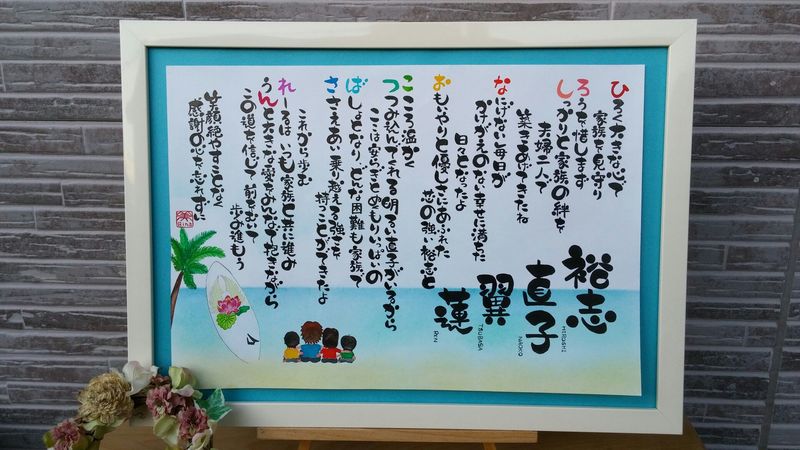 ひろく大きな心で
家族を見守り
ろうを惜しまず
しっかりと家族の絆を
夫婦二人で
築きあげてきたね
なにげない毎日が
かけがえのない幸せに満ちた
日々となったよ
おもいやりと優しさにあふれた
芯の強い裕志と
こころ温かく
つつみ込んでくれる明るい直子がいるから
ここは安らぎとぬくもりいっぱいの
ばしょとなり、どんな困難も家族で
ささえあい乗り越える強さを
持つことができたよ
これから歩む
れーるは いつも家族と共に進み
うんと大きな夢をみんなで抱きながら
この道を信じて 前をむいて
歩み進もう
笑顔絶やすことなく
感謝の心を忘れずに
裕志
HIROSHI
直子
NAOKO
翼
TSUBASA
蓮
REN